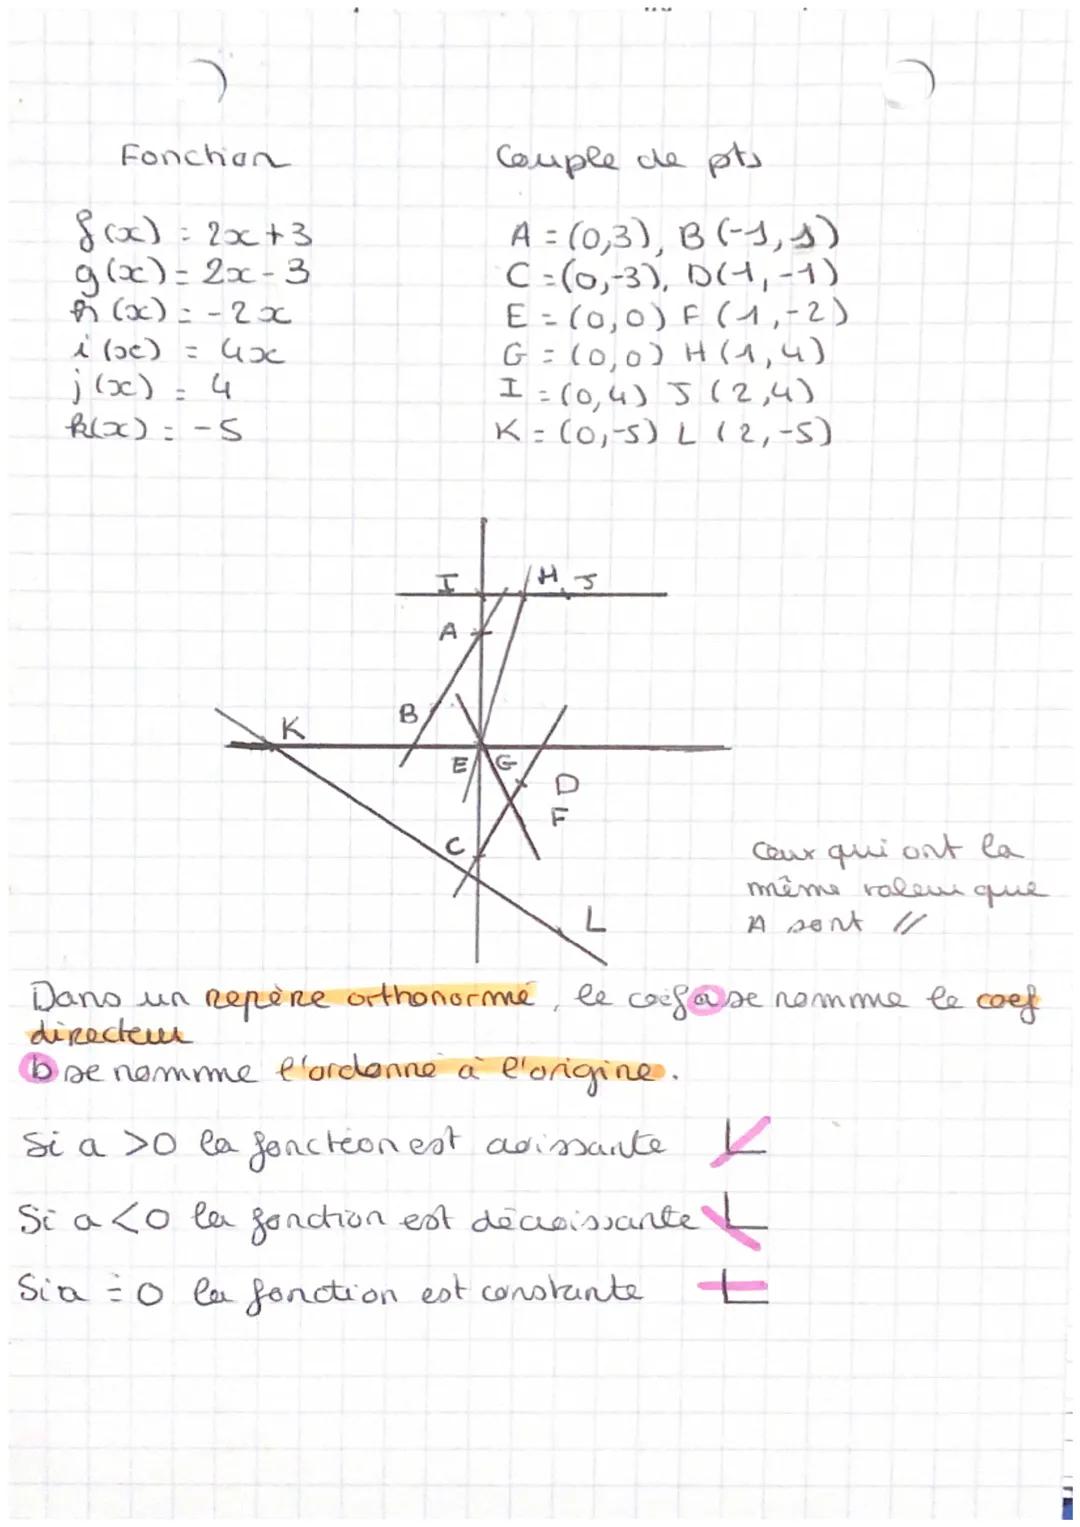 Fonction Couple de pts
f(x) = 2x+3 A = (0,3), B(-1,1)
g(x) = 2x-3 C = (0,-3), D(1,-1)
h(x) = -2x E = (0,0) F(1,-2)
i(x) = 4x G = (0,0) H(1,4)
j(x) = 4 I = (0,4) J(2,4)
k(x) = -5 K = (0,-5) L(2,-5)
I H, J
A
B
K
E G
D
F
C
L
Ceux qui ont la
même valeur que
A sont //
Dans un repère orthonormé, le coef a se nomme le coef
directeur
b se nomme l'ordonné à l'origine.
Si a >0 la fonction est croissante
Si a <0 la fonction est décroissante
Si a = 0 la fonction est constante